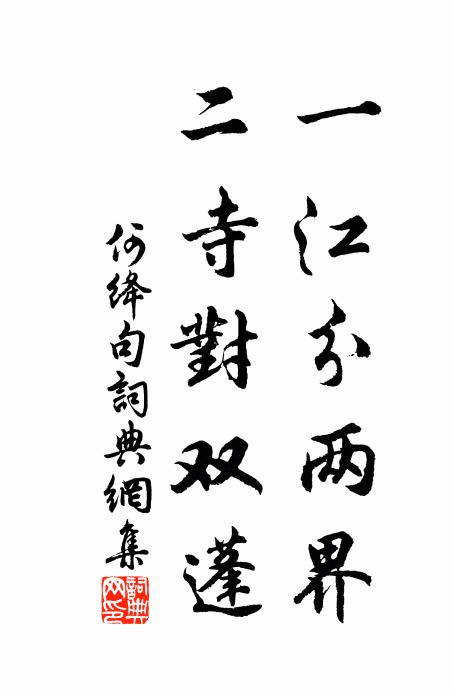 一江分两界
二寺對双蓬
何绛句詞典網集
詞典网印